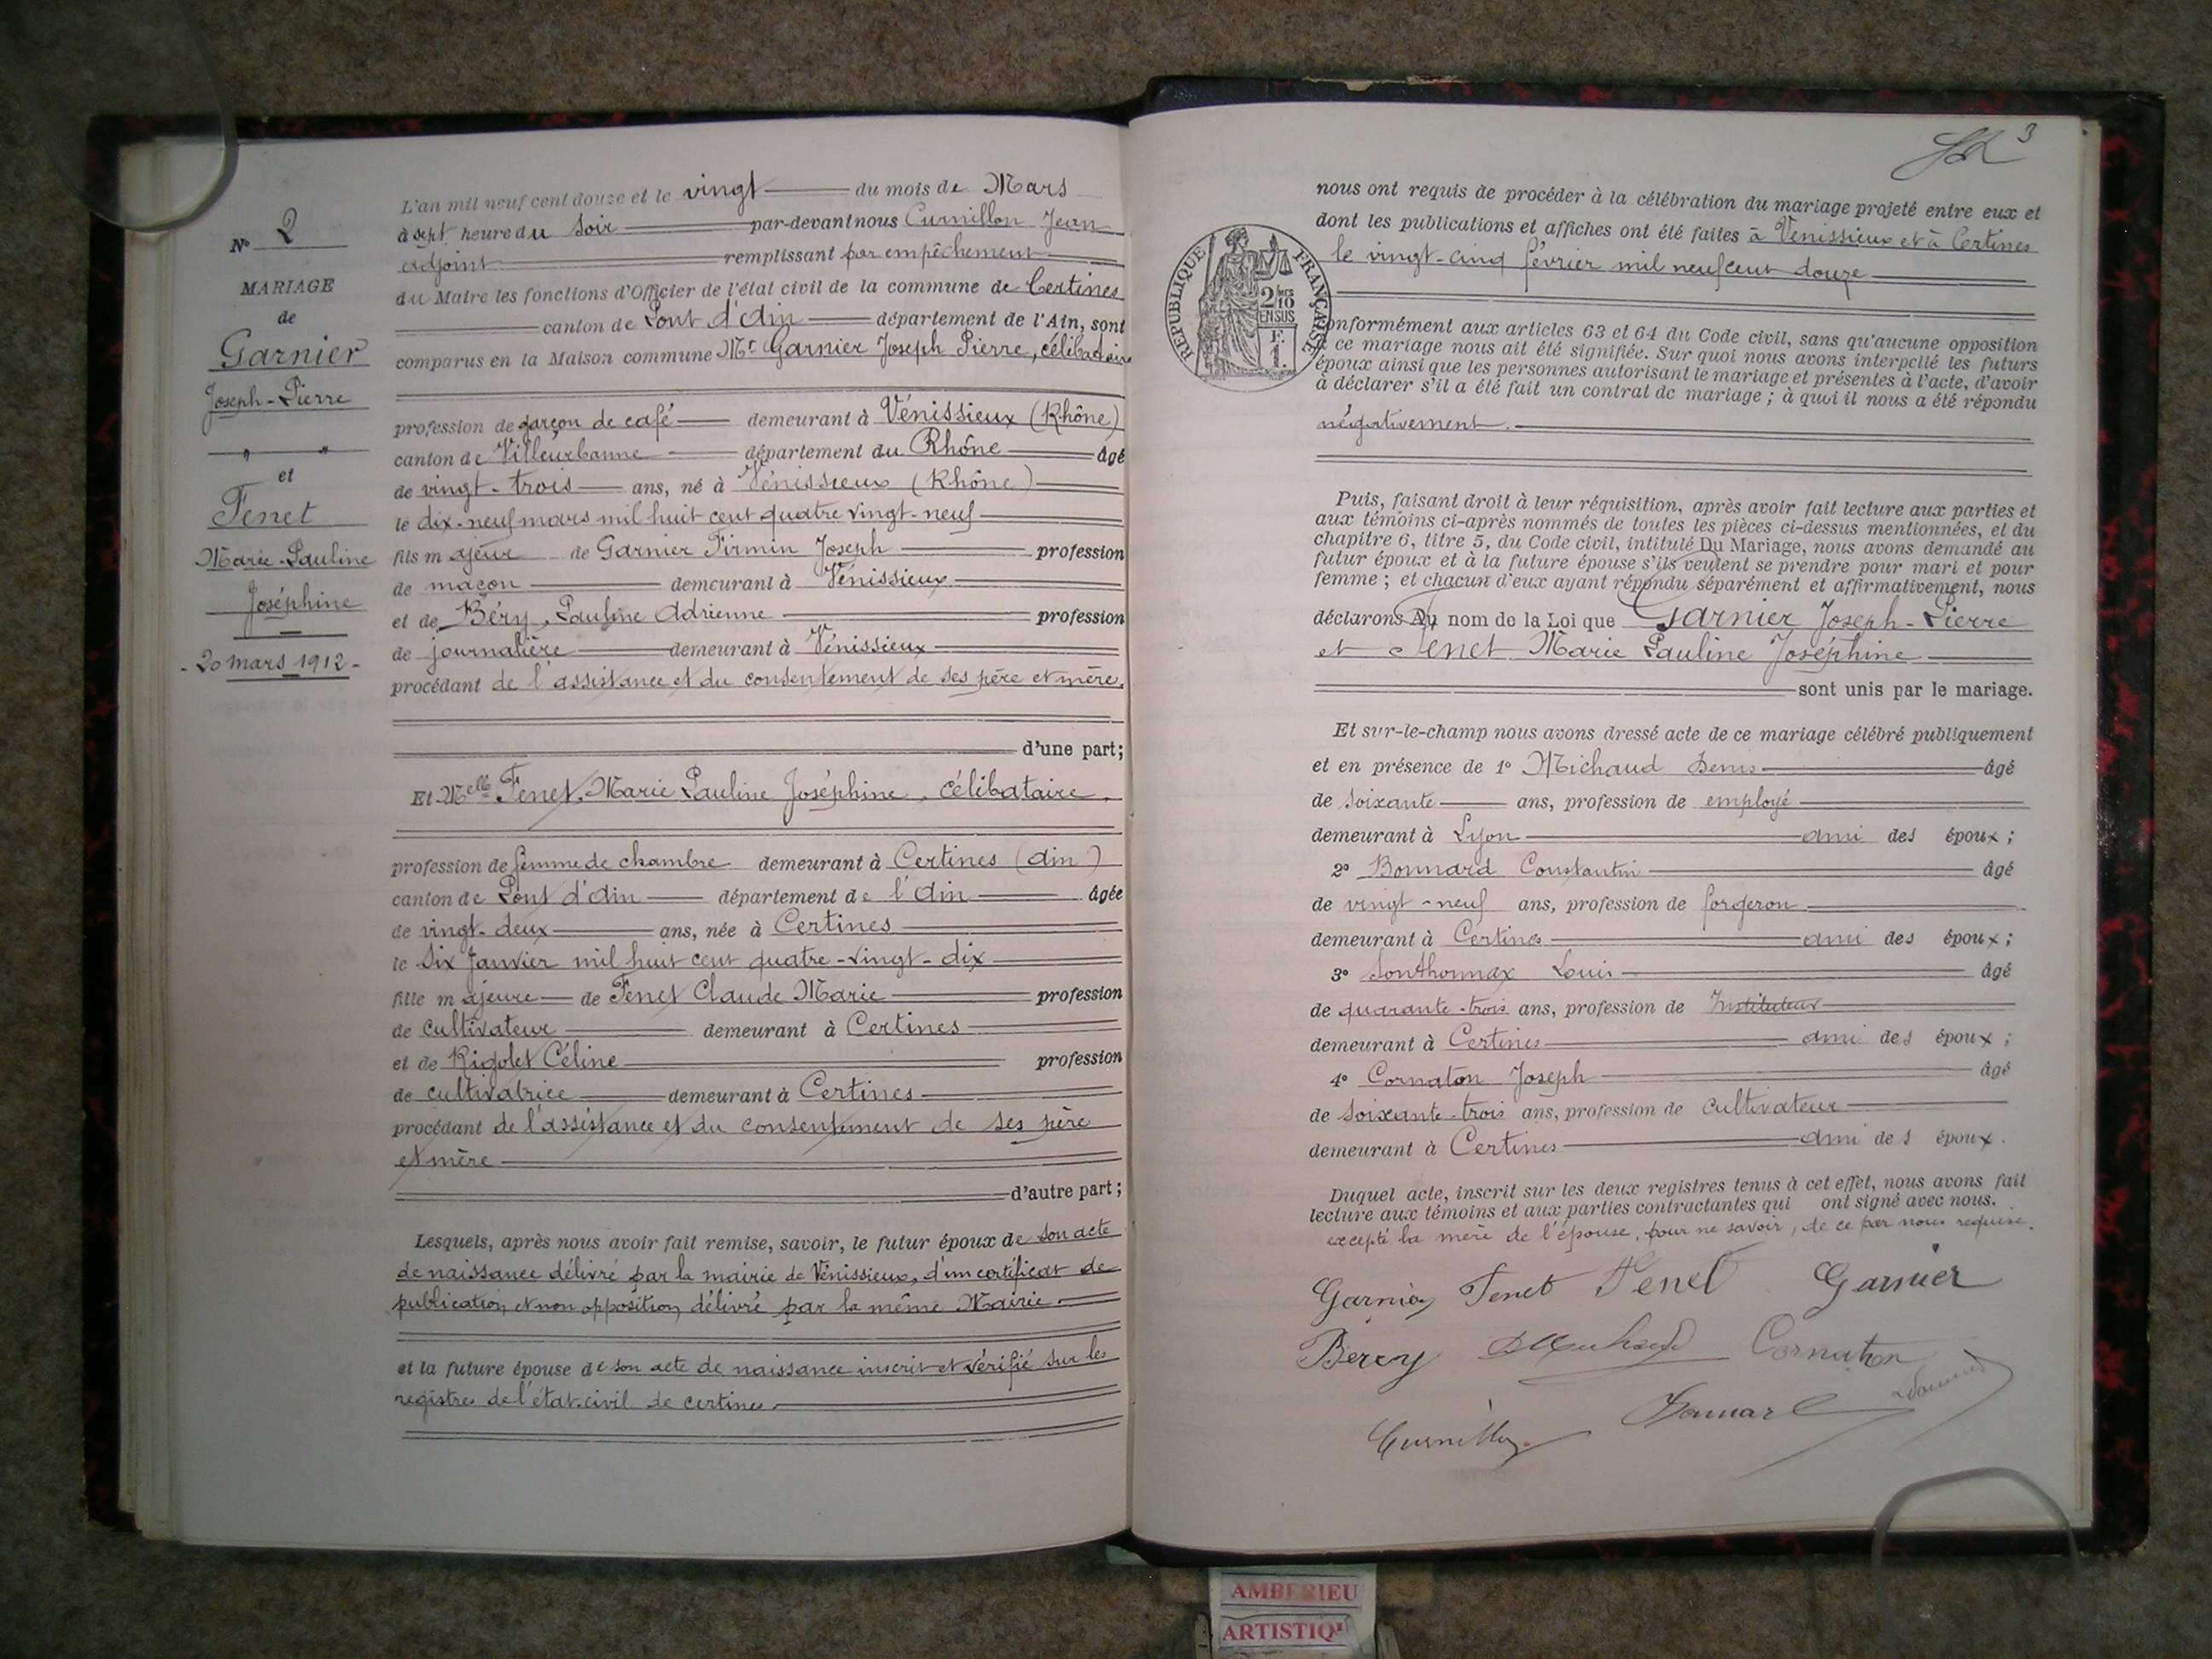 N° 2
MARIAGE
de
Garnier
Joseph-Pierre
et
Fenet
Marie-Pauline
Joséphine
- 20 mars 1912 -
L'an mil neuf cent douze et le vingt du mois de Mars
à sept heure du soir par-devant nous Curnillon Jean
adjoint remplissant par empêchement
du Maire les fonctions d'Officier de l'état civil de la commune de Certines
canton de Pont d'Ain département de l'Ain, sont
comparus en la Maison commune Mr Garnier Joseph Pierre, célibataire
profession de garçon de café demeurant à Vénissieux (Rhône)
canton de Villeurbanne département du Rhône âgé
de vingt-trois ans, né à Vénissieux (Rhône)
le dix-neuf mars mil huit cent quatre vingt-neuf
fils majeur de Garnier Firmin Joseph profession
de maçon demeurant à Vénissieux
et de Béry, Pauline Adrienne profession
de journalière demeurant à Vénissieux
procédant de l'assistance et du consentement de ses père et mère.
d'une part;
Et Melle Fenet, Marie Pauline Joséphine, célibataire.
profession de femme de chambre demeurant à Certines (Ain)
canton de Pont d'Ain département de l'Ain âgée
de vingt-deux ans, née à Certines
le six Janvier mil huit cent quatre-vingt-dix
fille majeure de Fenet Claude Marie profession
de cultivateur demeurant à Certines
et de Rigolet Céline profession
de cultivatrice demeurant à Certines
procédant de l'assistance et du consentement de ses père
et mère
d'autre part;
Lesquels, après nous avoir fait remise, savoir, le futur époux de son acte
de naissance délivré par la mairie de Vénissieux, d'un certificat de
publication et non opposition délivré par la même Mairie.
et la future épouse de son acte de naissance inscrit et vérifié sur les
registres de l'état-civil de certines
3
nous ont requis de procéder à la célébration du mariage projeté entre eux et
dont les publications et affiches ont été faites à Vénissieux et à Certines
le vingt-cinq février mil neuf cent douze
RÉPUBLIQUE FRANÇAISE
2/10 EN SUS
F. 1.
conformément aux articles 63 et 64 du Code civil, sans qu'aucune opposition
à ce mariage nous ait été signifiée. Sur quoi nous avons interpellé les futurs
époux ainsi que les personnes autorisant le mariage et présentes à l'acte, d'avoir
à déclarer s'il a été fait un contrat de mariage; à quoi il nous a été répondu
négativement.
Puis, faisant droit à leur réquisition, après avoir fait lecture aux parties et
aux témoins ci-après nommés de toutes les pièces ci-dessus mentionnées, et du
chapitre 6, titre 5, du Code civil, intitulé Du Mariage, nous avons demandé au
futur époux et à la future épouse s'ils veulent se prendre pour mari et pour
femme; et chacun d'eux ayant répondu séparément et affirmativement, nous
déclarons Au nom de la Loi que Garnier Joseph-Pierre
et Fenet Marie Pauline Joséphine
sont unis par le mariage.
Et sur-le-champ nous avons dressé acte de ce mariage célébré publiquement
et en présence de 1° Michaud Denis âgé
de soixante ans, profession de employé
demeurant à Lyon ami des époux;
2° Bonnard Constantin âgé
de vingt-neuf ans, profession de forgeron
demeurant à Certines ami des époux;
3° Sonthonnax Louis âgé
de quarante-trois ans, profession de Instituteur
demeurant à Certines ami des époux;
4° Cornaton Joseph âgé
de soixante-trois ans, profession de cultivateur
demeurant à Certines ami des époux.
Duquel acte, inscrit sur les deux registres tenus à cet effet, nous avons fait
lecture aux témoins et aux parties contractantes qui ont signé avec nous.
excepté la mère de l'épouse, pour ne savoir, de ce par nous requise.
Garnier Fenet Fenet Garnier
Berry Cornaton
Curnillon Bonnard
AMBERIEU
ARTISTIQ